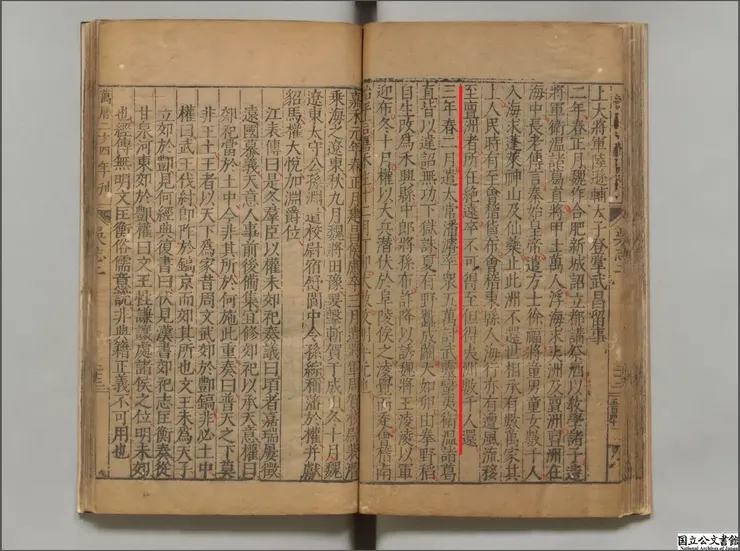 上大將軍陸遜輔太子登掌武昌留事
二年春正月魏作合肥新城詔立都講祭酒以教學諸子遣
將軍衛溫諸葛直將甲士萬人浮海求夷洲及亶洲亶洲在
海中長老傳言秦始皇帝遣方士徐福將童男童女數千人
入海求蓬萊神山及仙藥止此洲不還世相承有數萬家其
上人民時有至會稽貨布會稽東縣人海行亦有遭風流移
至亶洲者所在絕遠卒不可得至但得夷洲數千人還
三年春二月遣太常潘濬率衆五萬討武陵蠻夷衛溫諸葛
直皆以違詔無功下獄誅夏有野蠶成繭大如卵由拳野稻
自生改為禾興縣中郎將孫布詐降以誘魏將王淩淩以軍
迎布冬十月權以大兵潛伏於阜陵俟之淩覺而走會稽南
始平言嘉禾生十二月丁卯大赦改明年元也
嘉禾元年春正月建昌侯慮卒三月遣將軍周賀校尉裴潛
乘海之遼東秋九月魏將田豫要擊斬賀于成山冬十月魏
遼東太守公孫淵遣校尉宿舒閬中令孫綜稱藩於權并獻
貂馬權大悅加淵爵位
江表傳曰是冬羣臣以權未郊祀奏議曰頃者嘉瑞屢徵
遠國慕義天意人事前後備集宜修郊祀以承天意權曰
郊祀當於土中今非其所於何施此重奏曰普天之下莫
非王土王者以天下爲家昔周文武郊於酆鎬非必土中
權曰武王伐紂卽阼於鎬京而郊其所也文王未爲天子
立郊於酆見何經典復書曰伏見漢書郊祀志匡衡奏從
甘泉河東郊於酆權曰文王性謙讓處諸侯之位明未郊
也經傳無明文匡衡俗儒意說非典籍正義不可用也
萬曆二十四年刊
吳志二
国立公文書館
National Archives of Japan